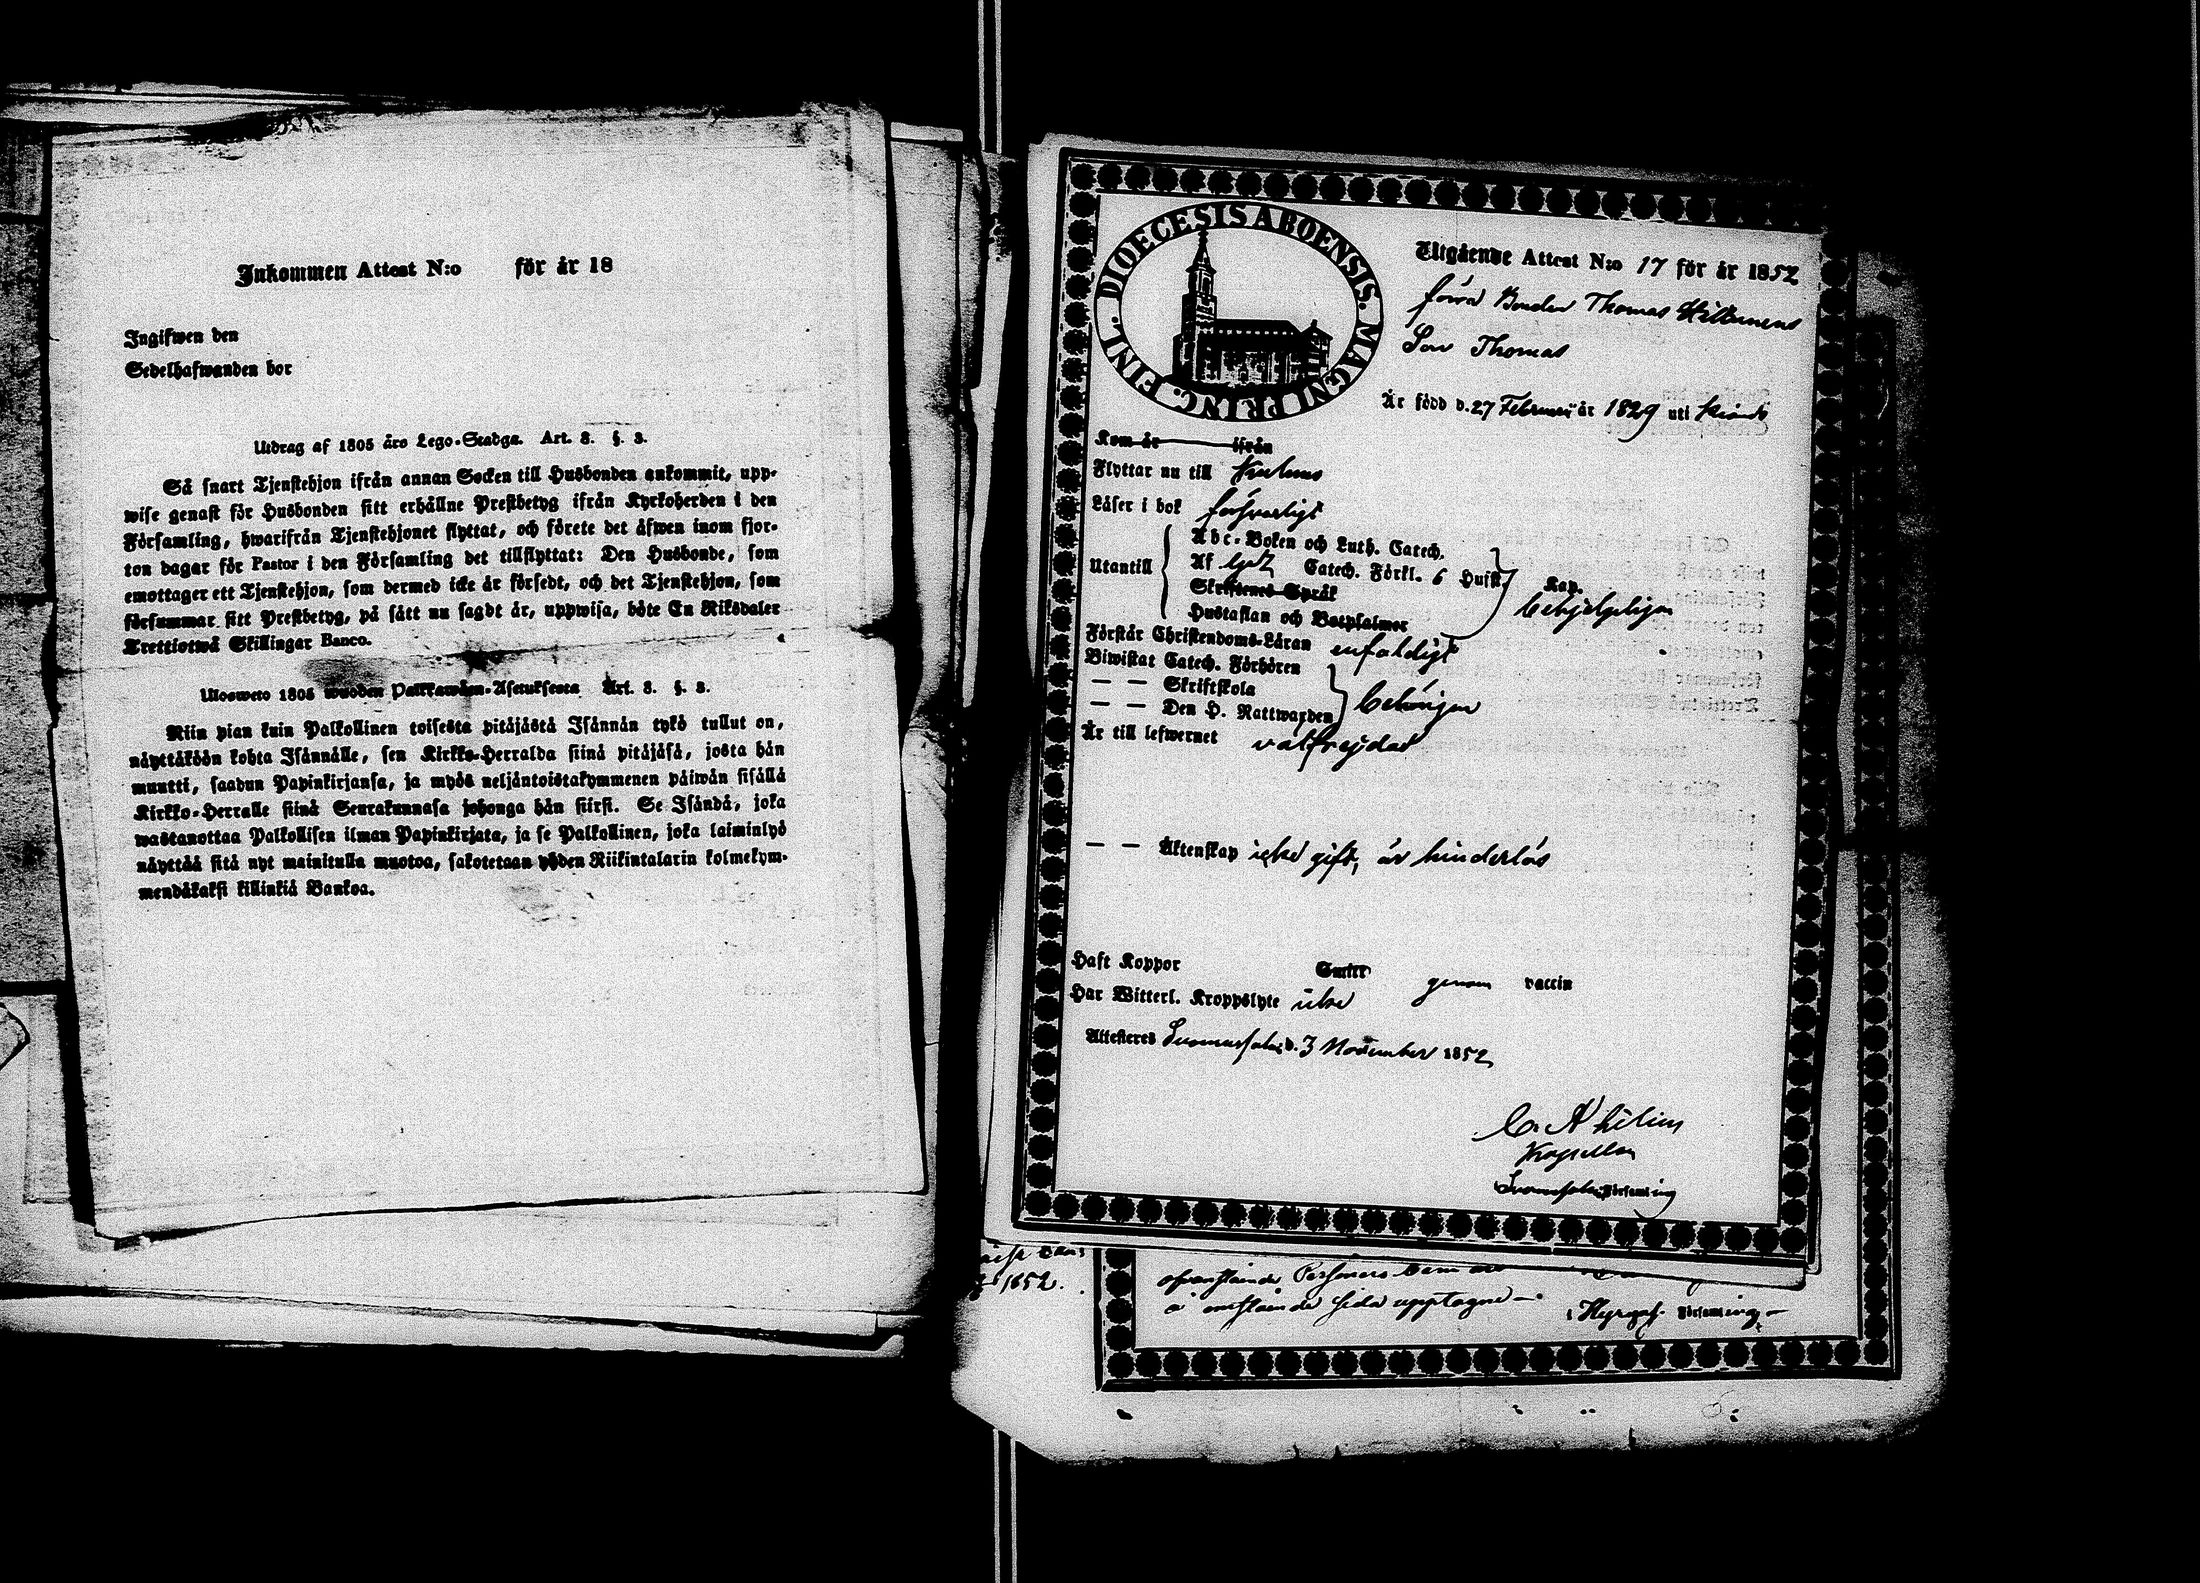 Inkommen Attest N:o för år 18
Ingifwen den
Sedelhafwanden bor
Utdrag af 1805 års Lego-Stadga. Art. 8. §. 3.
Så snart Tjenstehjon ifrån annan Socken till Husbonden ankommit, upp-
wise genast för Husbonden sitt erhållne Prestbetyg ifrån Kyrkoherden i den
Församling, hwarifrån Tjenstehjonet flyttat, och förete det äfwen inom fjor-
ton dagar för Pastor i den Församling det tillflyttat: Den Husbonde, som
emottager ett Tjenstehjon, som dermed icke är försedt, och det Tjenstehjon, som
försummar sitt Prestbetyg, på sätt nu sagdt är, uppwisa, böte En Riksdaler
Trettiotwå Skillingar Banco.
Ulosweto 1805 wuoden Palkkawäen-Asetuksesta Art. 8. §. 3.
Niin pian kuin Palkollinen toisesta pitäjästä Isännän tykö tullut on,
näyttäköön kohta Isännälle, sen Kirkko-Herralda siinä pitäjäsä, josta hän
muutti, saadun Papinkirjansa, ja myös neljäntoistakymmenen päiwän sisällä
Kirkko-Herralle siinä Seurakunnasa johonga hän siirsi. Se Isändä, joka
wastanottaa Palkollisen ilman Papinkirjata, ja se Palkollinen, joka laiminlyö
näyttää sitä nyt mainitulla muotoa, sakotetaan yhden Riikintalarin kolmekym-
mendäkaksi killinkiä Bankoa.
DIOECESIS ABOENSIS. MAGNI PRINC. FINL.
Utgående Attest N:o 17 för år 1852
förra Bonden Thomas
Son Thomas
Är född d. 27 Februarii år 1829 uti
Kom år ifrån
Flyttar nu till
Läser i bok försvarligt
Utantill
Abc-Boken och Luth. Catech.
Af Catech. Förkl. 6 Hufst. Kap.
Skriftenes Språk
Hustaflan och Botpsalmer
behjelpligen
Förstår Christendoms-Läran enfaldigt
Biwistat Catech. Förhören
— — Skriftskola
— — Den H. Nattwarden
behörigen
Är till lefwernet välfrejdad
— — Äktenskap icke gift, är hinderlös
Haft Koppor genom vaccin
Har Witterl. Kroppslyte icke
Attesteras Suomussalmi d. 3 November 1852
Kapellan
Suomussalmi Församling
1852.
ofvanstående Personers
å omstående sida upptagne —
i Hyryns. Församling —